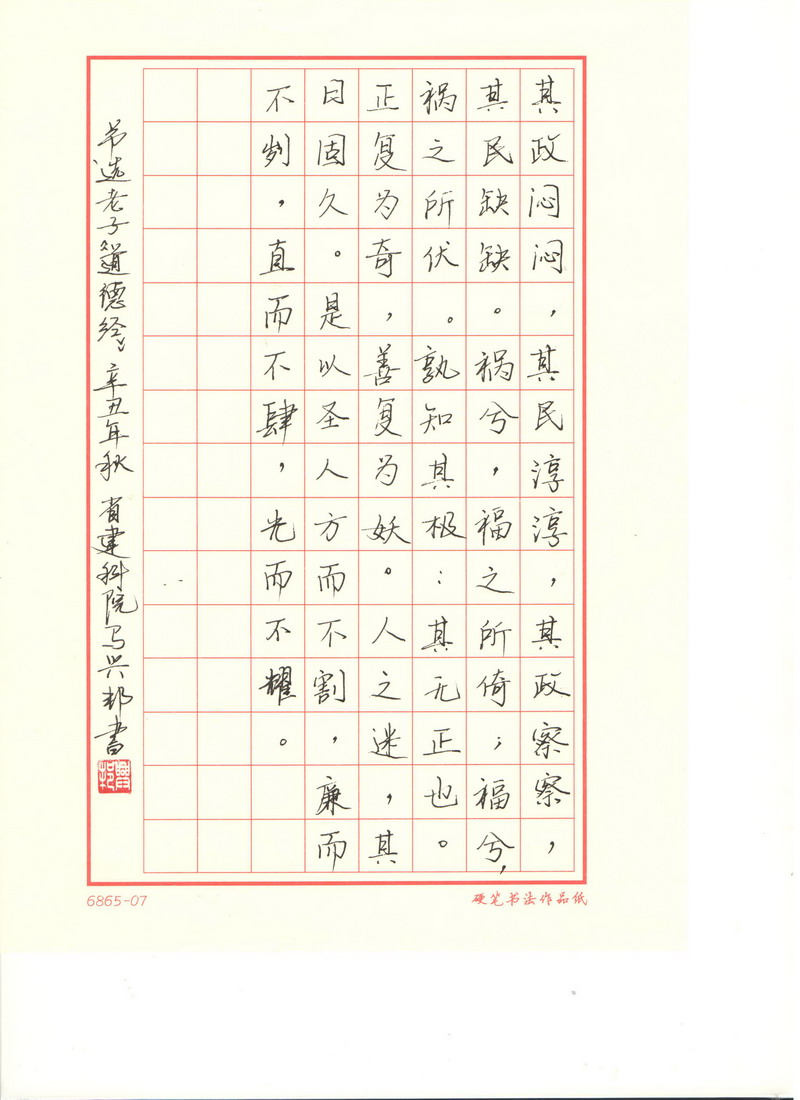 其政闷闷，其民淳淳，其政察察，
其民缺缺。祸兮，福之所倚；福兮，
祸之所伏。孰知其极：其无正也。
正复为奇，善复为妖。人之迷，其
日固久。是以圣人方而不割，廉而
不刿，直而不肆，光而不耀。
节选老子道德经 辛丑年秋 省建科院马兴邦书
6865-07
硬笔书法作品纸